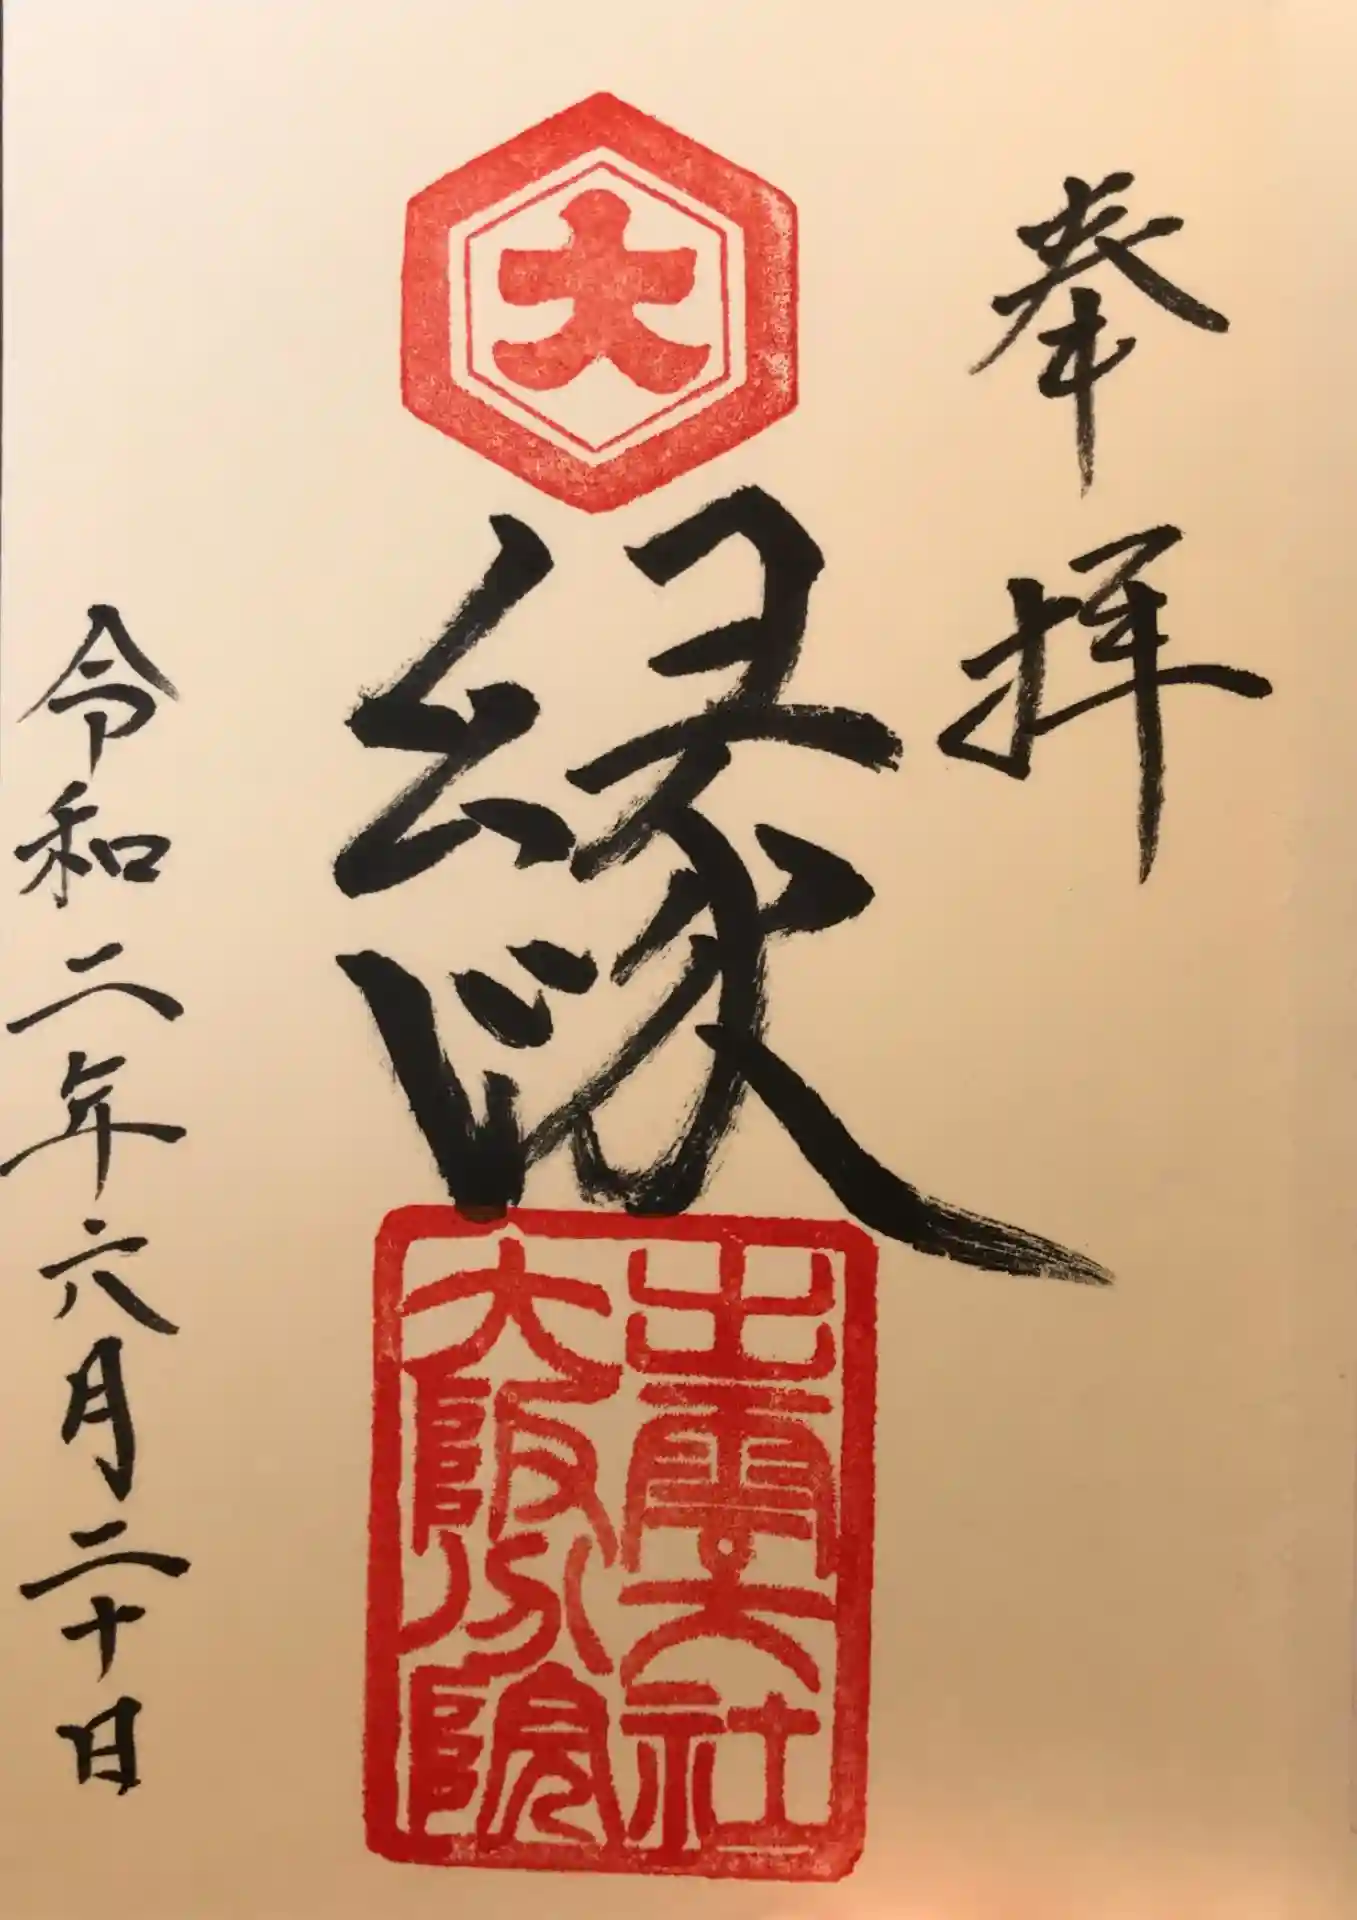 奉拝
大
縁
出雲大社
大阪分院
令和二年六月二十日